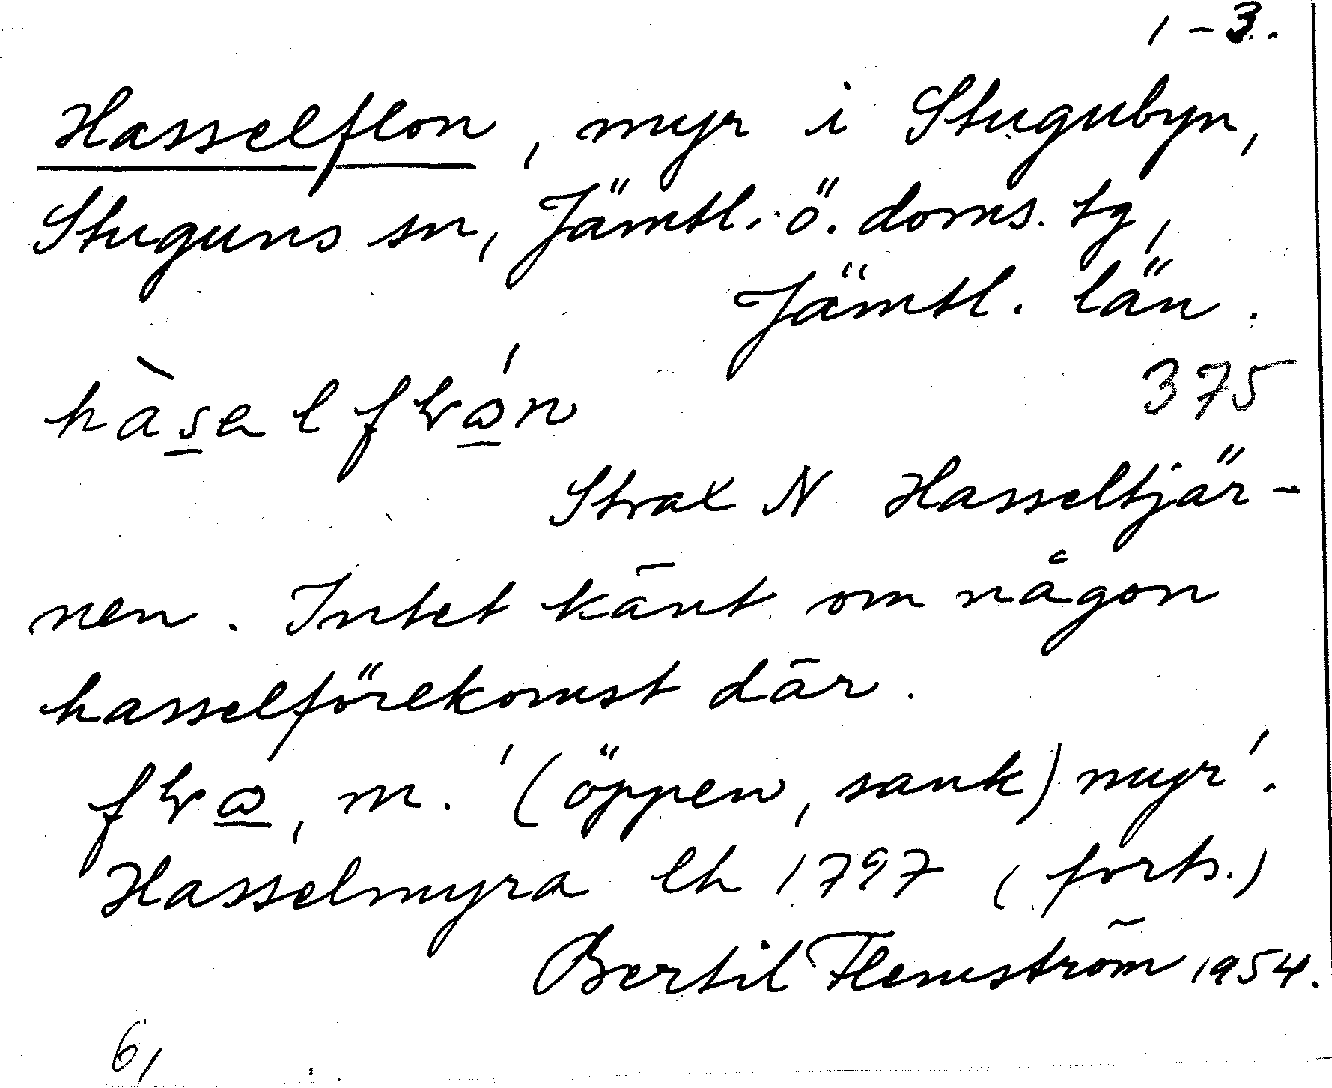 1-3.
Hasselflon, myr i Stugubyn,
Stuguns sn, Jämtl. ö. doms. tg,
Jämtl. län.
375
Strax N Hasseltjär-
nen. Intet känt om någon
hasselförekomst där.
m. '(öppen, sank) myr'.
Hasselmyra lh 1797 (forts.)
Bertil Flemström 1954.
6/